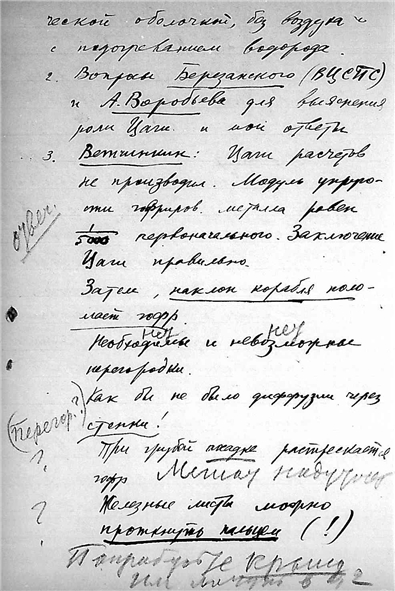 ческой оболочкой, без воздуха и
с подогреванием водорода.
2. Вопросы Березанского (ВЦСПС)
и А. Воробьева для выяснения
роли Цаги и мои ответы
3. Ветчинкин: Цаги расчетов
не производил. Модуль упруго-
сти гофриров. металла равен
1/5000 первоначального. Заключение
Цаги правильно.
Затем, наклон корабля поло-
мает гофр
нет нет
Необходимы и невозможные
перегородки.
(Перегор.?) Как бы не было диффузии через
стенки!
? При грубой посадке растрескается
гофр
? Железные листы можно
проткнуть пальцем (!)
Попробуйте крышу